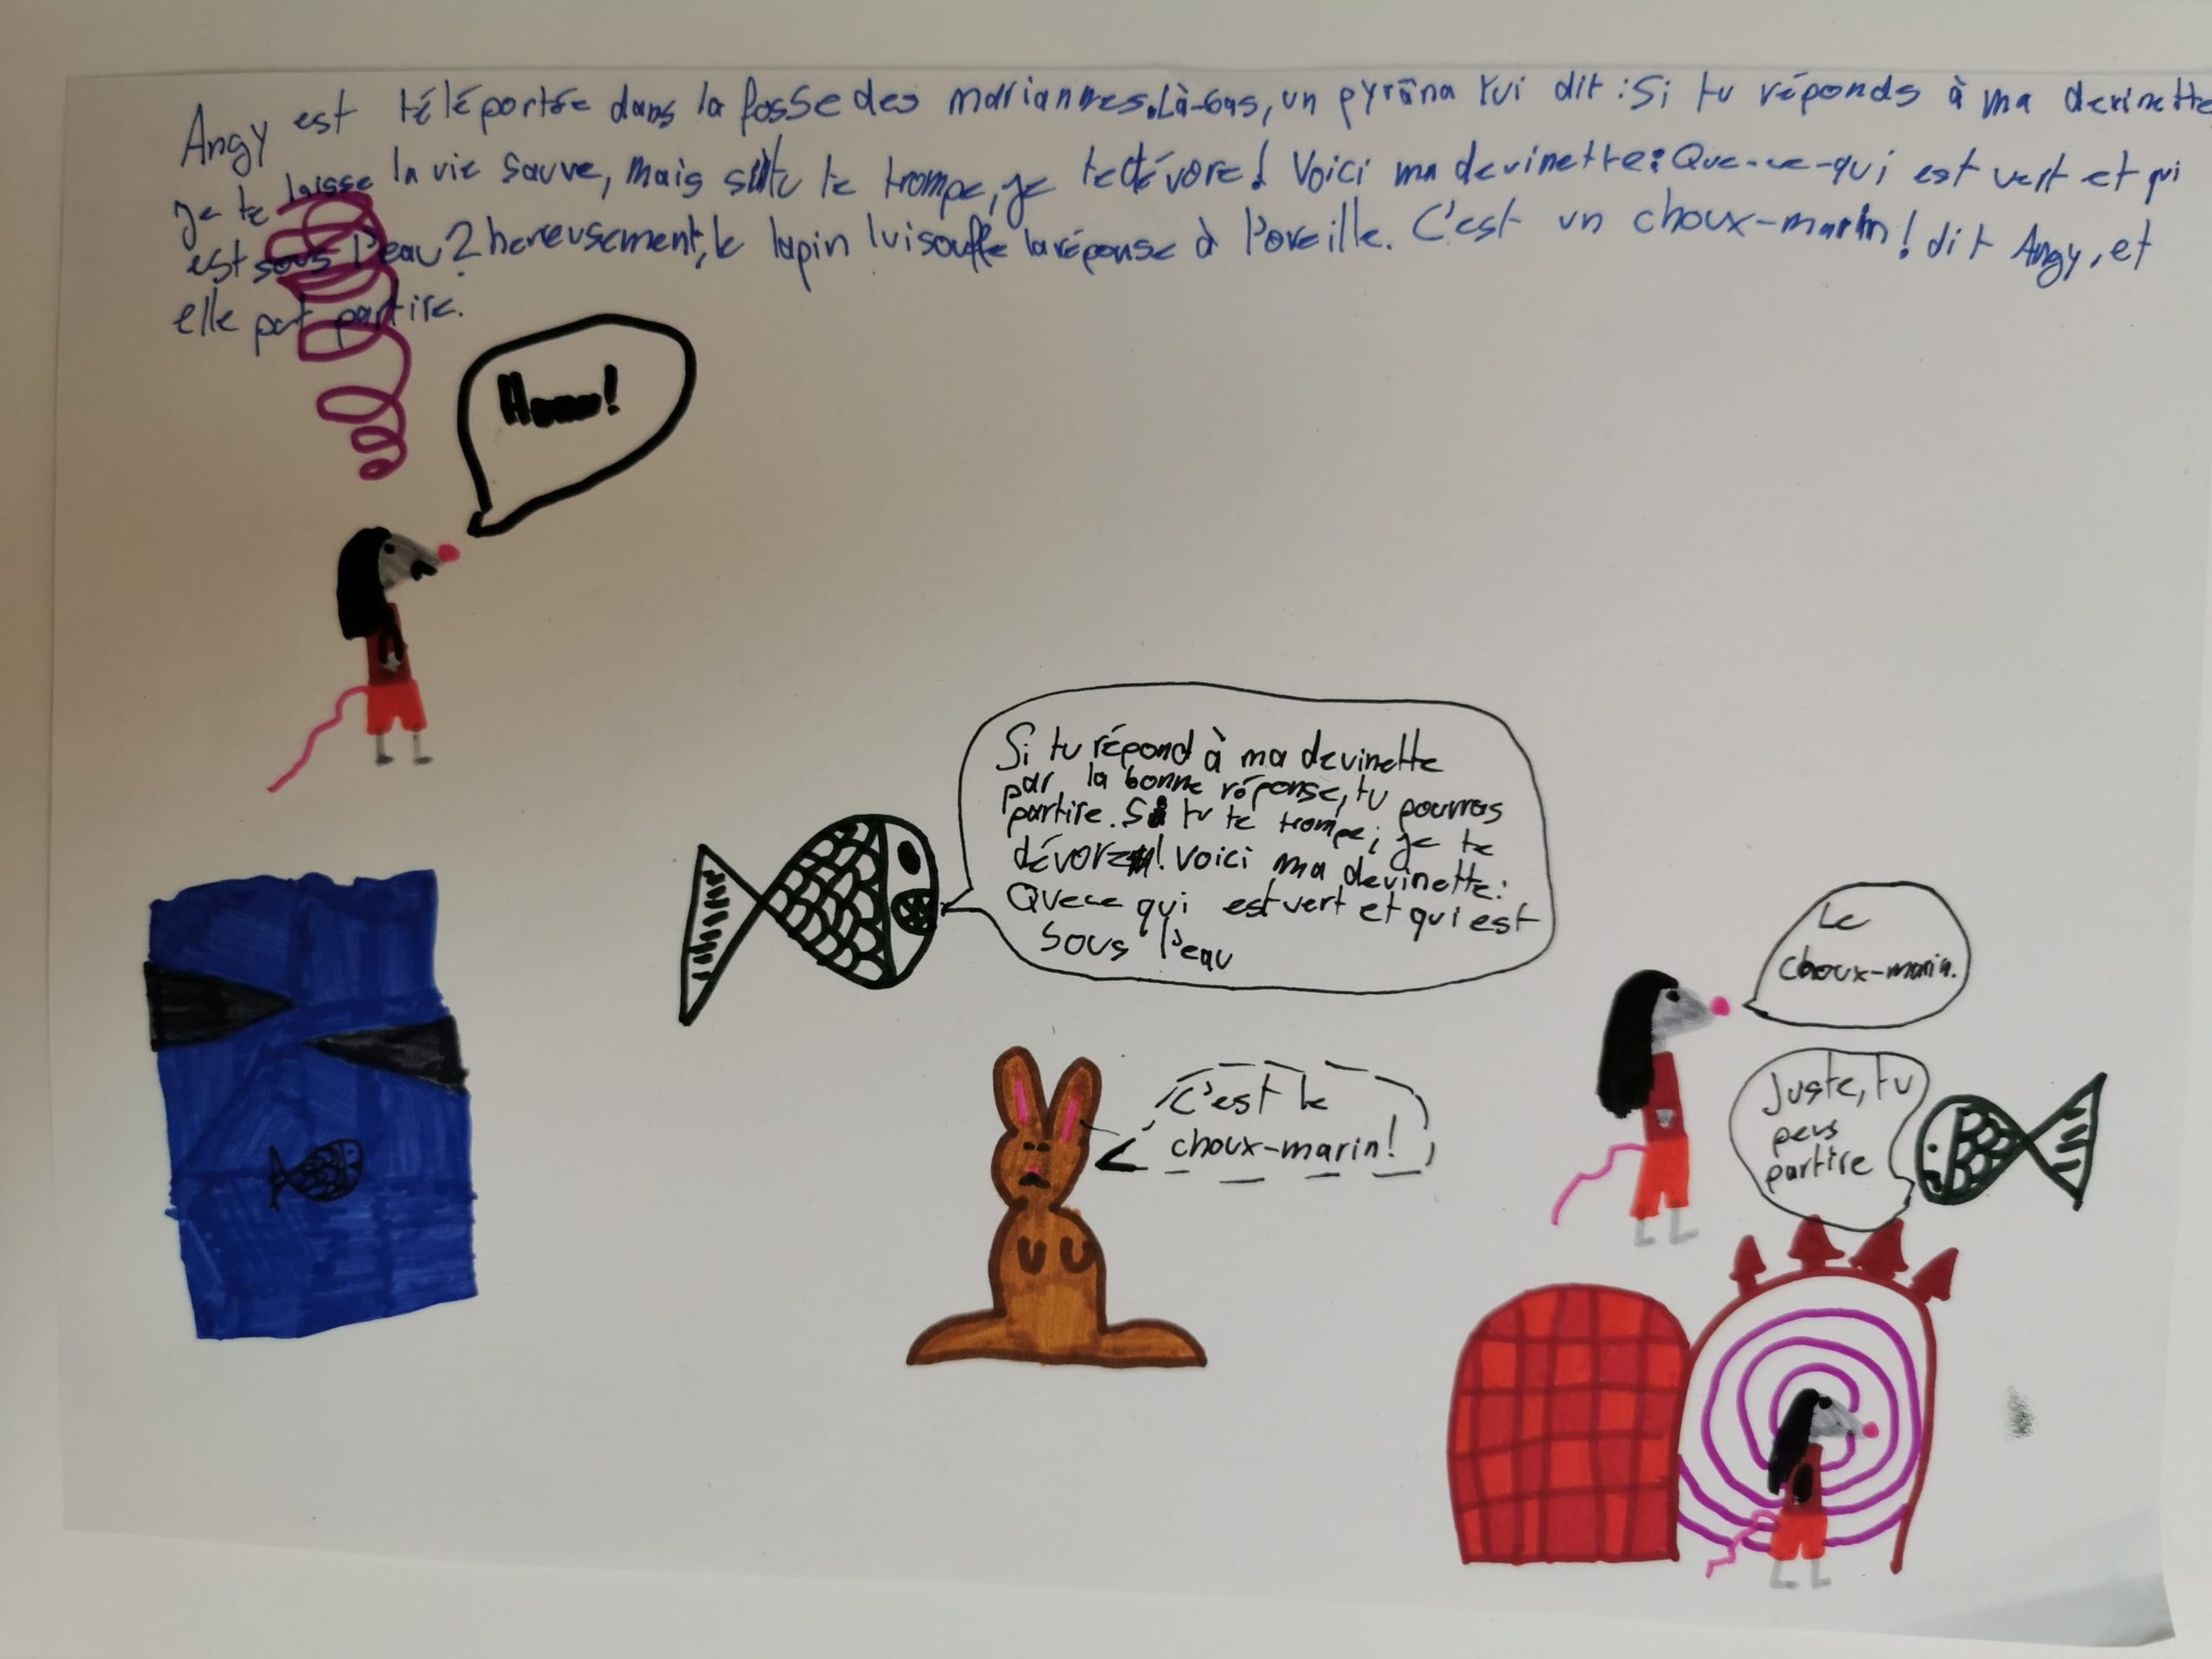 Angy est téléportée dans la fosse des mariannes. Là-bas, un pyrāna lui dit : Si tu réponds à ma devinette,
je te laisse la vie sauve, mais si tu te trompe, je te dévore! Voici ma devinette: Que-ce-qui est vert et qui
est sous l'eau? hereusement, le lapin lui souffle la réponse à l'oreille. C'est un choux-marin! dit Angy, et
elle put partire.
Si tu répond à ma devinette
par la bonne réponse, tu pourras
partire. Si tu te trompe, je te
dévore! Voici ma devinette:
Quece qui est vert et qui est
sous l'eau
C'est le
choux-marin!
Le
choux-marin.
Juste, tu
peus
partire